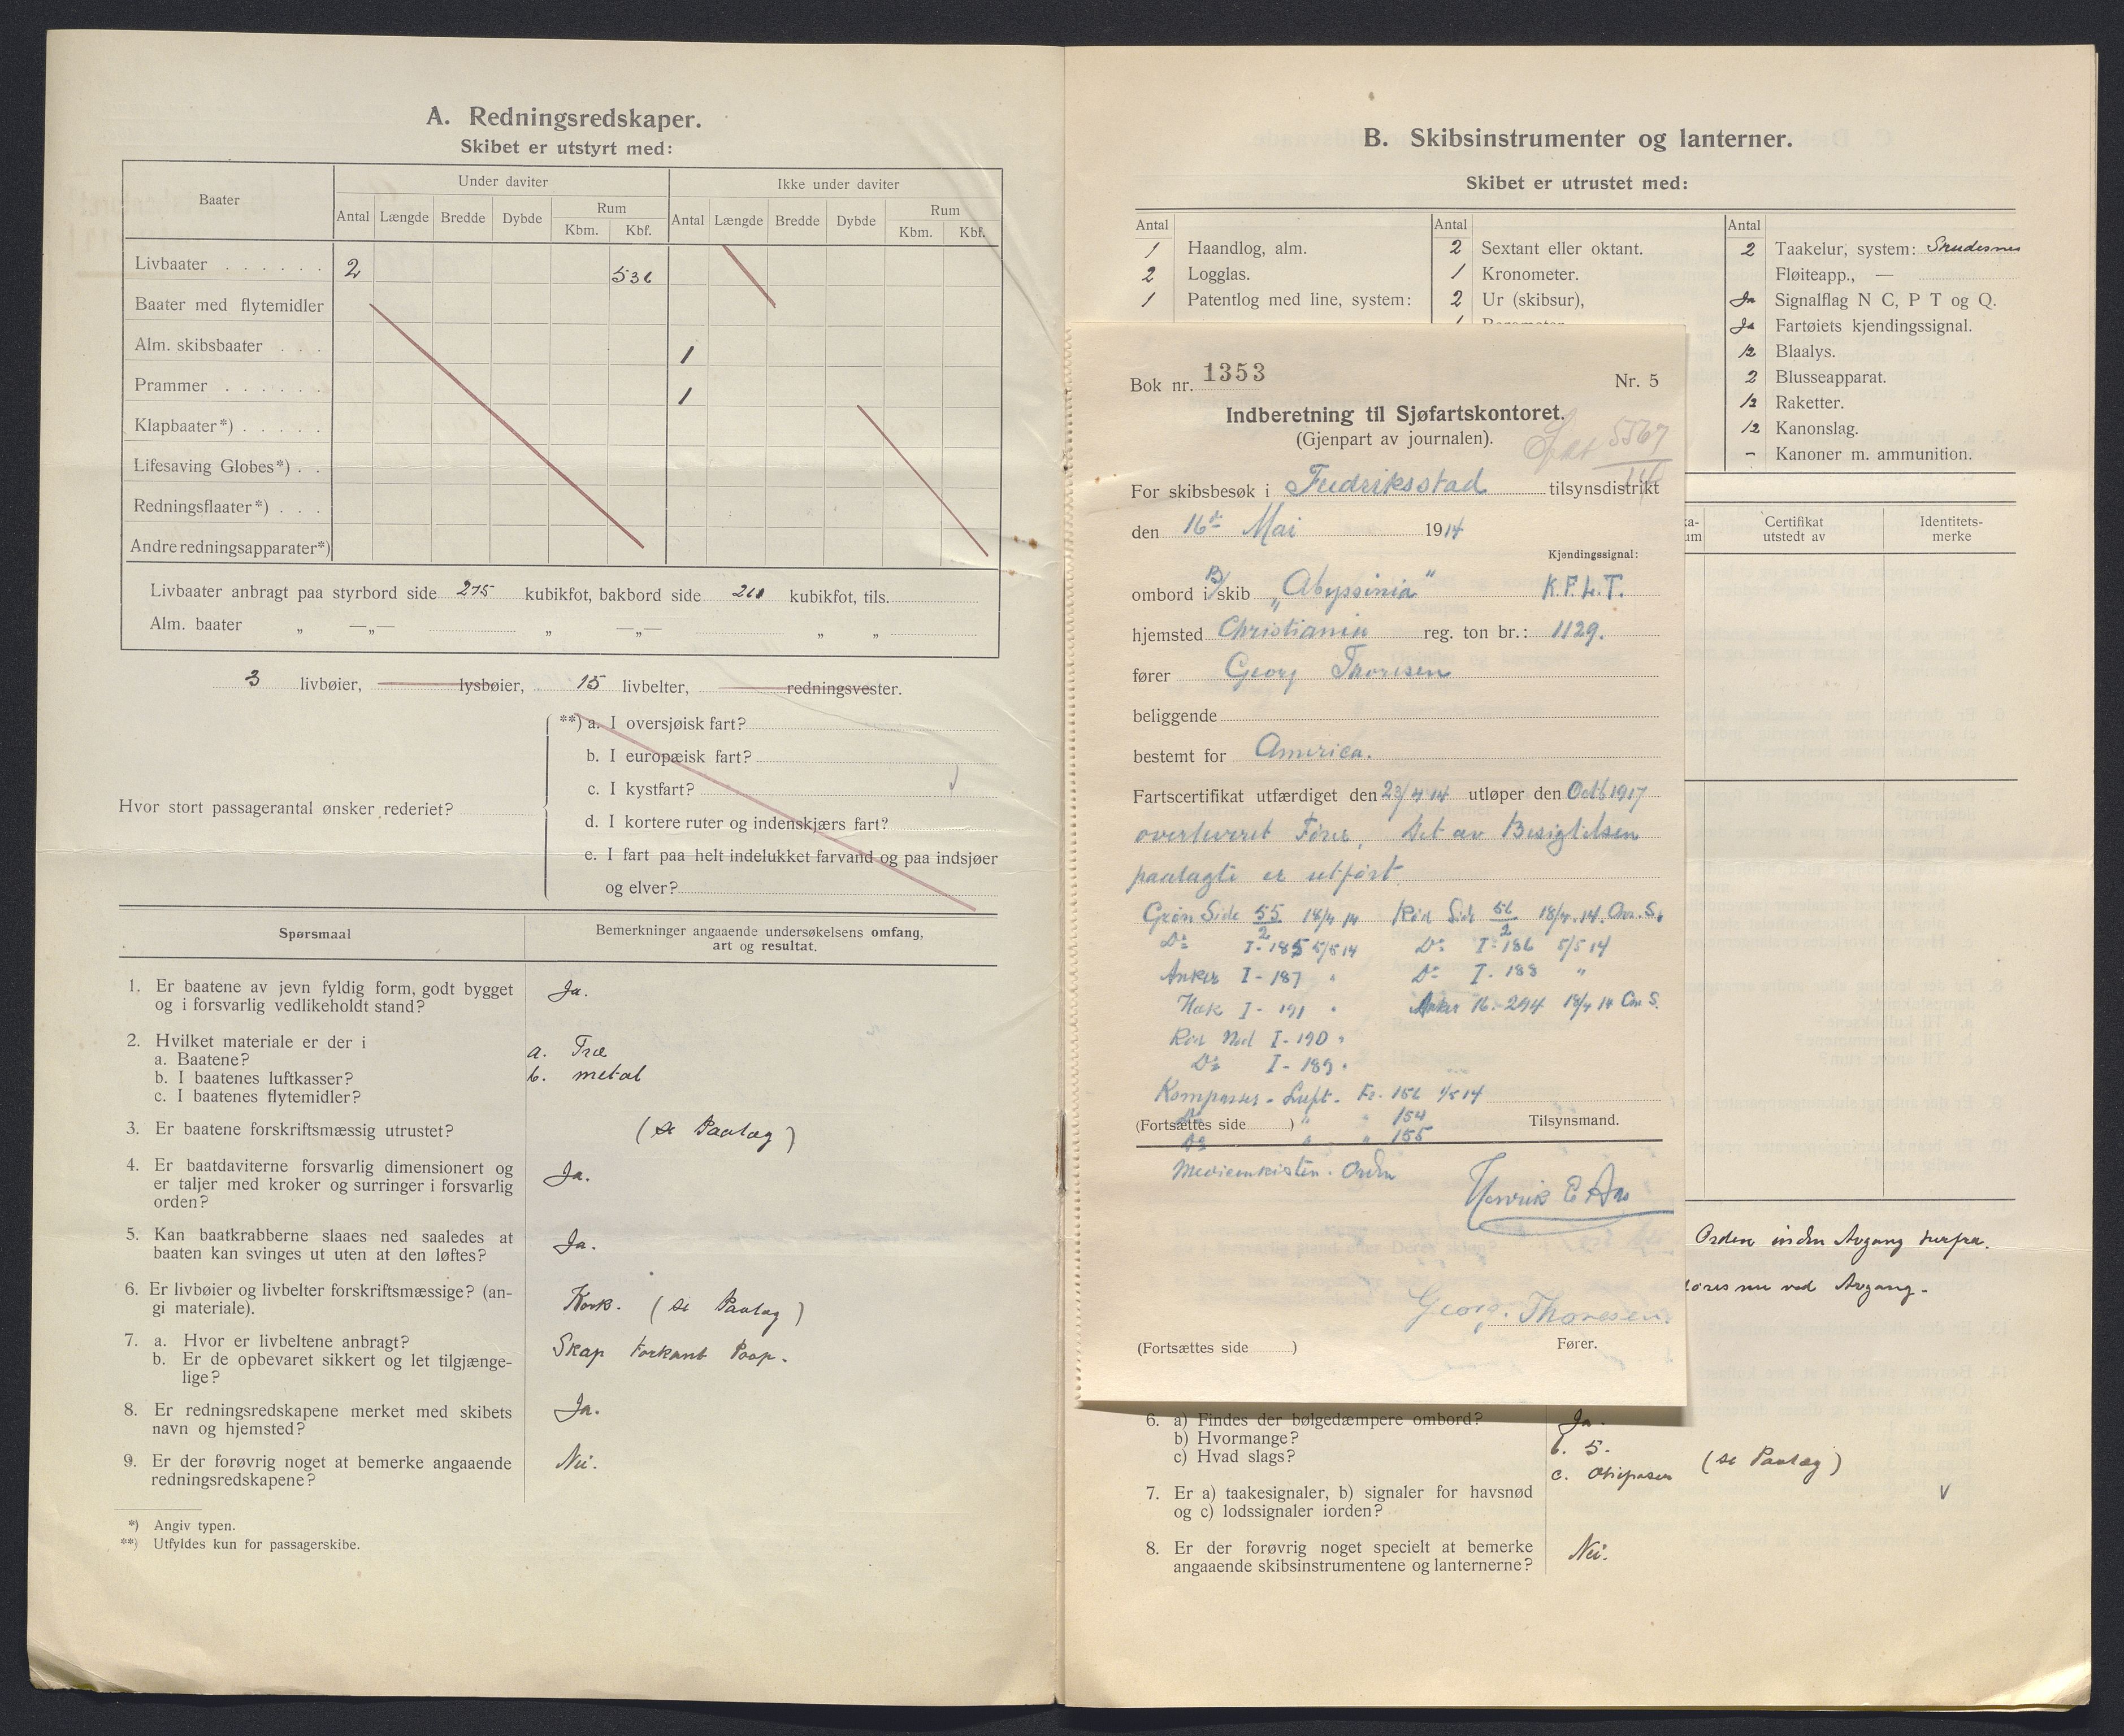 A. Redningsredskaper.
Skibet er utstyrt med:
Baater
Under daviter
Ikke under daviter
Antal Længde Bredde Dybde Rum Kbm. Kbf.
Antal Længde Bredde Dybde Rum Kbm. Kbf.
Livbaater . . . . . . 2 536
Baater med flytemidler
Alm. skibsbaater . . . 1
Prammer . . . . . . 1
Klapbaater*) . . . . .
Lifesaving Globes*) . .
Redningsflaater*) . . .
Andre redningsapparater*)
Livbaater anbragt paa styrbord side 275 kubikfot, bakbord side 261 kubikfot, tils.
Alm. baater „ —„— „ —„— „ „
3 livbøier, lysbøier, 15 livbelter, redningsvester.
Hvor stort passagerantal ønsker rederiet?
**) a. I oversjøisk fart?
b. I europæisk fart?
c. I kystfart?
d. I kortere ruter og indenskjærs fart?
e. I fart paa helt indelukket farvand og paa indsjøer
og elver?
Spørsmaal
Bemerkninger angaaende undersøkelsens omfang,
art og resultat.
1. Er baatene av jevn fyldig form, godt bygget
og i forsvarlig vedlikeholdt stand?
Ja.
2. Hvilket materiale er der i
a. Baatene? a. Træ
b. I baatenes luftkasser? b. metal
c. I baatenes flytemidler?
3. Er baatene forskriftsmæssig utrustet? (se Paalæg)
4. Er baatdaviterne forsvarlig dimensionert og
er taljer med kroker og surringer i forsvarlig
orden?
Ja.
5. Kan baatkrabberne slaaes ned saaledes at
baaten kan svinges ut uten at den løftes?
Ja.
6. Er livbøier og livbelter forskriftsmæssige? (an-
gi materiale).
Kork. (se Paalæg)
7. a. Hvor er livbeltene anbragt?
b. Er de opbevaret sikkert og let tilgjænge-
lige?
Skap forkant Poop.
8. Er redningsredskapene merket med skibets
navn og hjemsted?
Ja.
9. Er der forøvrig noget at bemerke angaaende
redningsredskapene?
Nei.
*) Angiv typen.
**) Utfyldes kun for passagerskibe.
B. Skibsinstrumenter og lanterner.
Skibet er utrustet med:
Antal Antal Antal
1 Haandlog, alm. 2 Sextant eller oktant. 2 Taakelur, system: Skudesnes
2 Logglas. 1 Kronometer. Fløiteapp., —
1 Patentlog med line, system: 2 Ur (skibsur), Ja Signalflag N C, P T og Q.
Ja Fartøiets kjendingssignal.
12 Blaalys.
2 Blusseapparat.
12 Raketter.
12 Kanonslag.
– Kanoner m. ammunition.
Certifikat
utstedt av
Identitets-
merke
Bok nr. 1353 Nr. 5
Indberetning til Sjøfartskontoret.
(Gjenpart av journalen).
5567
For skibsbesøk i Fredriksstad tilsynsdistrikt
den 16de Mai 1914
Kjendingssignal:
ombord i B/skib „Abyssinia" K.F.L.T.
hjemsted Christiania reg. ton br.: 1129.
fører Georg Thoresen
beliggende
bestemt for America.
Fartscertifikat utfærdiget den 23/4 14 utløper den Octb 1917
overleveret Fører, det av Besigtelsen
paalagte er utført
Grøn Side 55/2 18/4 14 Rød Side 56/2 18/4.14. Chr. S.
Do I-185 5/5 14 Do I-186 5/5 14
Anker I-187 " Do I-188 "
Hæk I-191 " Anker 16-294 18/4 14 Chr S.
Rød Nød I-190 "
Do I-189 "
Kompasser - Luft. Fr. 156 1/5 14
Do " " 154
(Fortsættes side ) Tilsynsmand.
Do " " 155
Medicinkisten. Orden
Henrik E Aas
Georg. Thoresen
(Fortsættes side ) Fører.
Orden inden Avgang herfra.
ved Avgang.
6. a) Findes der bølgedæmpere ombord? Ja.
b) Hvormange? b. 5.
c) Hvad slags? c. Olieposer (se Paalæg)
7. Er a) taakesignaler, b) signaler for havsnød
og c) lodssignaler iorden?
V
8. Er der forøvrig noget specielt at bemerke
angaaende skibsinstrumentene og lanternerne?
Nei.